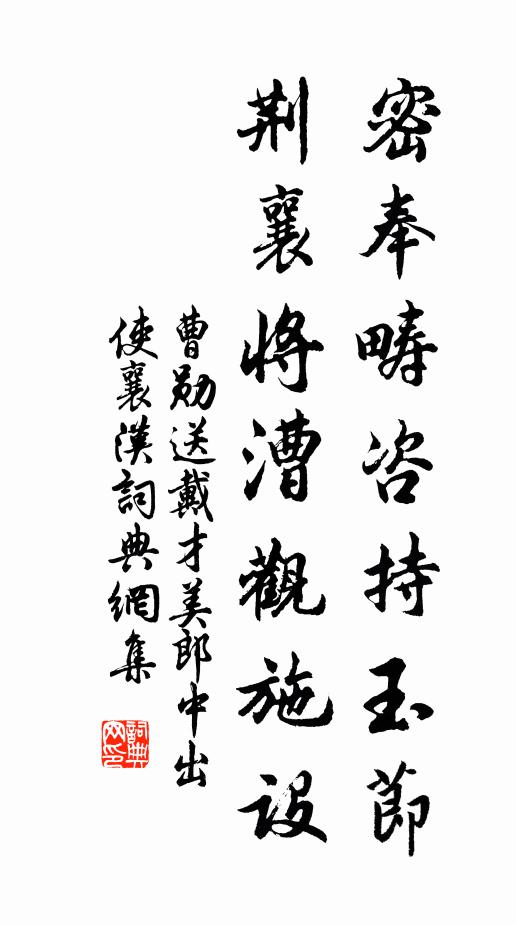 密奉疇咨持玉節
荆襄將漕觀施設
曹勛送戴才美郎中出
使襄漢詞典網集
詞典
网印